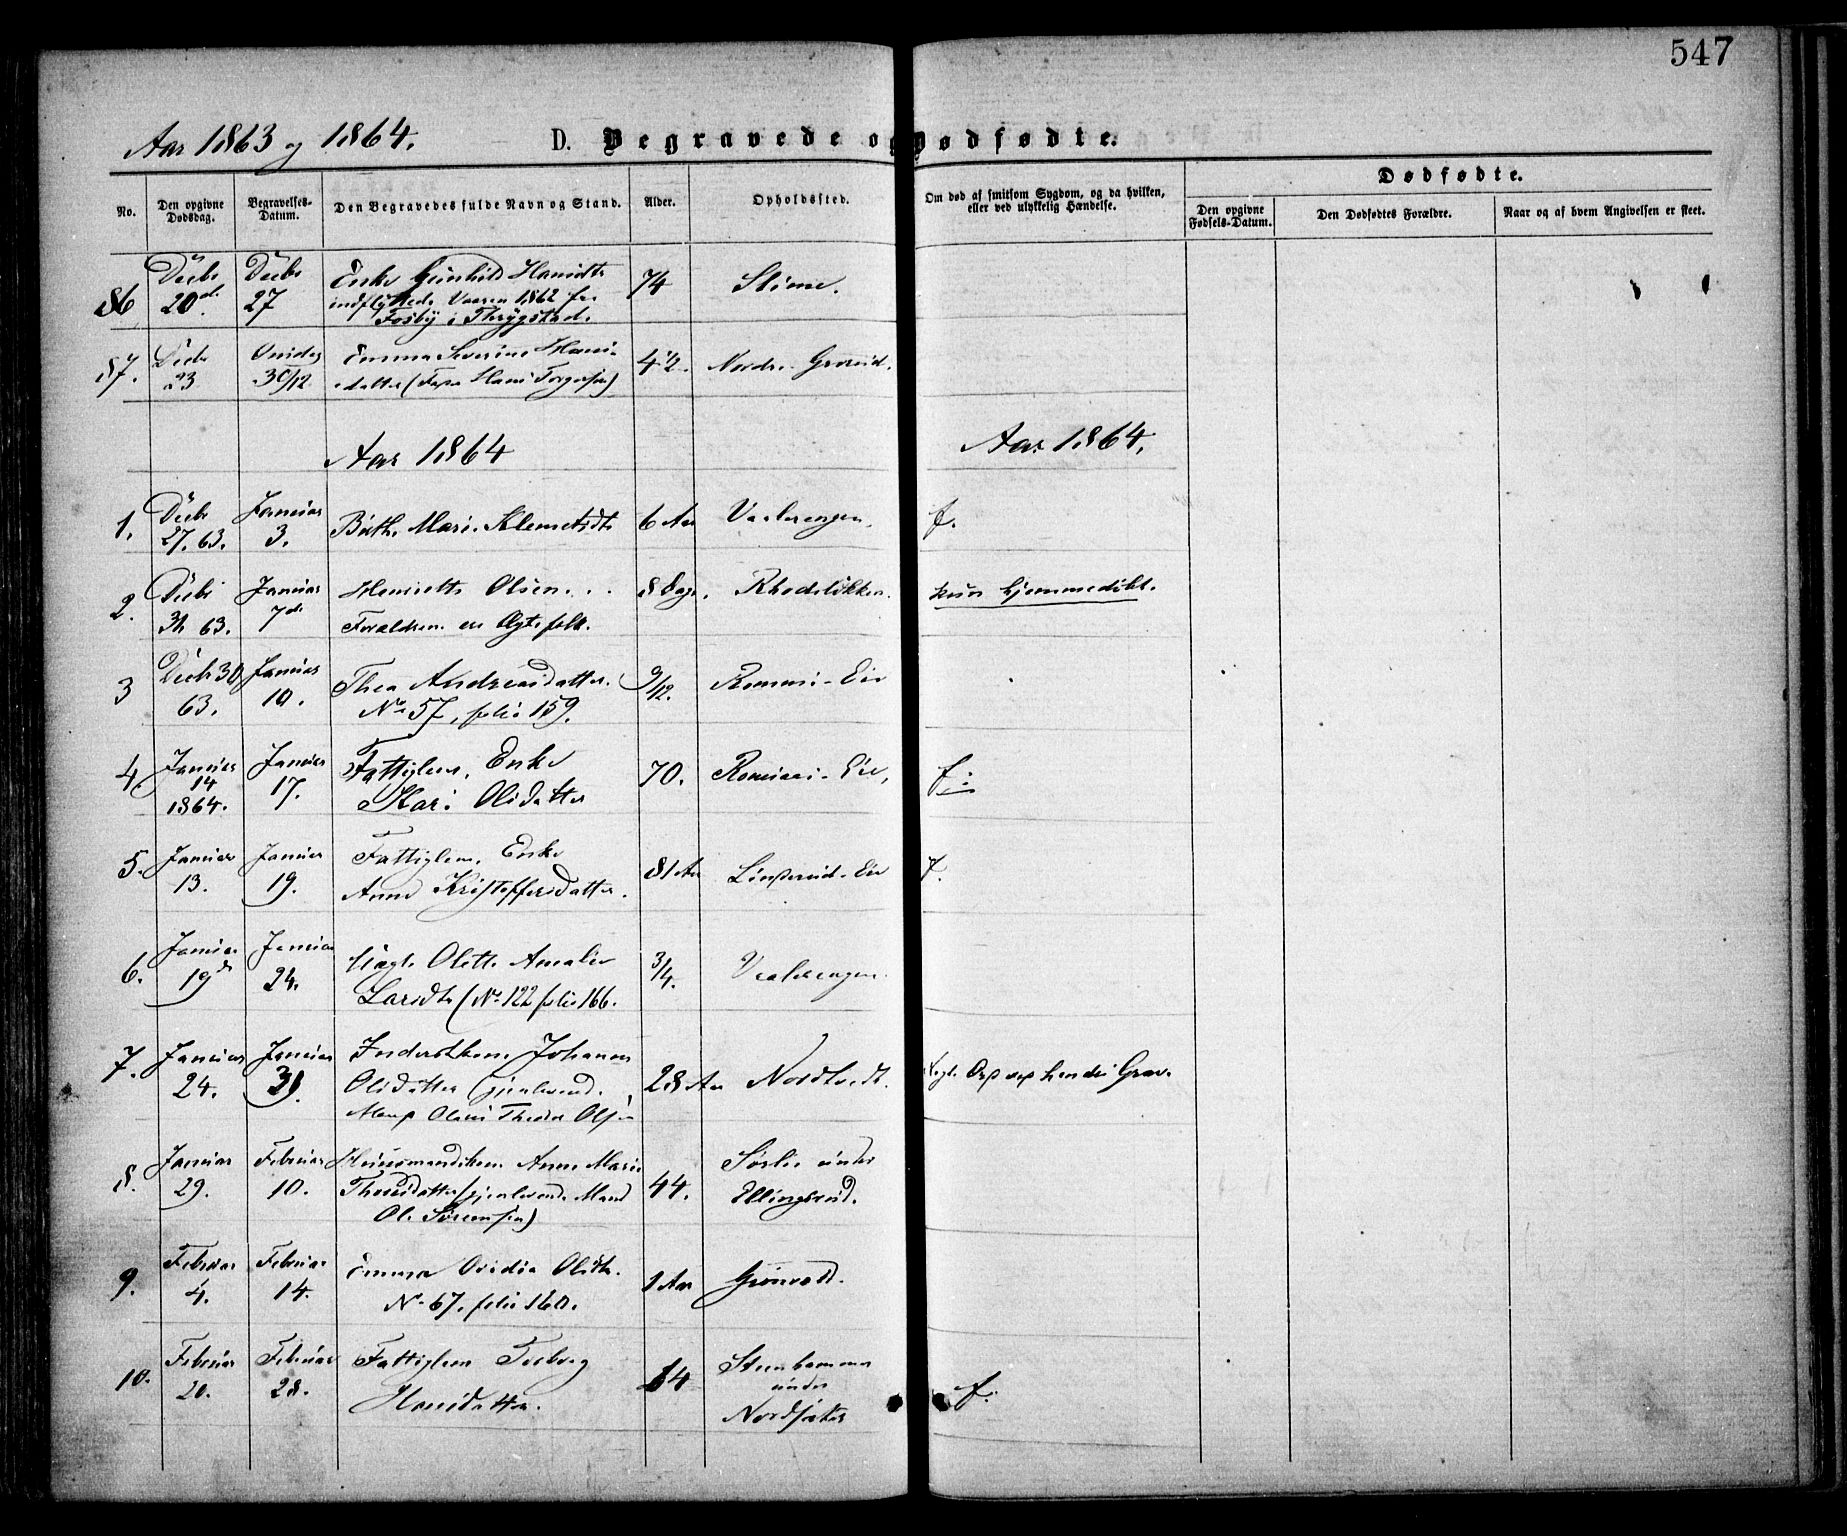 547
Aar 1863 og 1864.
D. Begravede og Dødfødte.
No.
Den opgivne Dødsdag.
Begravelses-Datum.
Den Begravedes fulde Navn og Stand.
Alder.
Opholdssted.
Om død af smitsom Sygdom, og da hvilken,
eller ved ulykkelig Hændelse.
Dødfødte.
Den opgivne Fødsels-Datum.
Den Dødfødtes Forældre.
Naar og af hvem Angivelsen er skeet.
86 Decbr 20de Decbr 27 Enke Gunhild Hansdtr 74
indflyttede Vaaren 1862 fra
Fosby i Thrygstad.
87. Decbr 23 Onsdag 30/12 Emma Severine Hans- 4 1/2. Nordre Grorud.
datter (Fape Hans Torgersen)
Aar 1864 Aar 1864.
1. Decbr 27. 63. Januar 3. Birthe Marie Klemetsdtr 6 Aar Vaalerengen. f.
2. Decbr 31 63. Januar 7de Henriette Olsen 8 Dage. Rhodeløkken. kun hjemmedøbt.
Forældrene ere Ægtefolk.
3 Decbr 30 63. Januar 10. Thea Andreasdatter. 9/12. Rommen-Eie
No 57, folio 159.
4. Januar 14 1864. Januar 17. Fattiglem, Enke 70. Rommen-Eie, f.
Kari Olsdatter
5. Januar 13. Januar 19. Fattiglem, Enke 81 Aar Linderud-Eie f.
Anne Kristoffersdatter.
6. Januar 19de Januar 24. Uægte Olette Amalie 3/4. Vaalerengen.
Larsdtr (No 122 folio 166.
7. Januar 24. Januar 31. Inderstkone Johanne 28 Aar Nordtvedt.
Olsdatter (gjenlevende
Mand Olaus Theodor Olsen
8. Januar 29. Februar 10. Huusmandskone Anne Marie 44. Sørlie under
Thorsdatter (gjenlevende Mand Ellingsrud.
Ole Sørensen)
9. Februar 4. Februar 14. Emma Ovidia Olsdtr. 1 Aar Grønvold.
No 67. folio 160.
10. Februar 20. Februar 28. Fattiglem Torborg 64 under f.
Hansdatter. Nordsæter